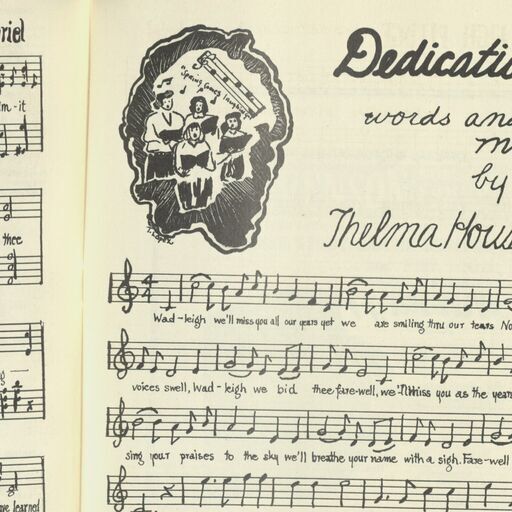 riel
m-it
thee
ve learned
Dedicatio
words and
m
by
Thelma Hous
Wad-leigh we'll miss you all our years yet we are smiling thru our tears No
voices swell, Wad-leigh we bid thee fare-well, we'll miss you as the years
sing your praises to the sky we'll breathe your name with a sigh. Fare-well